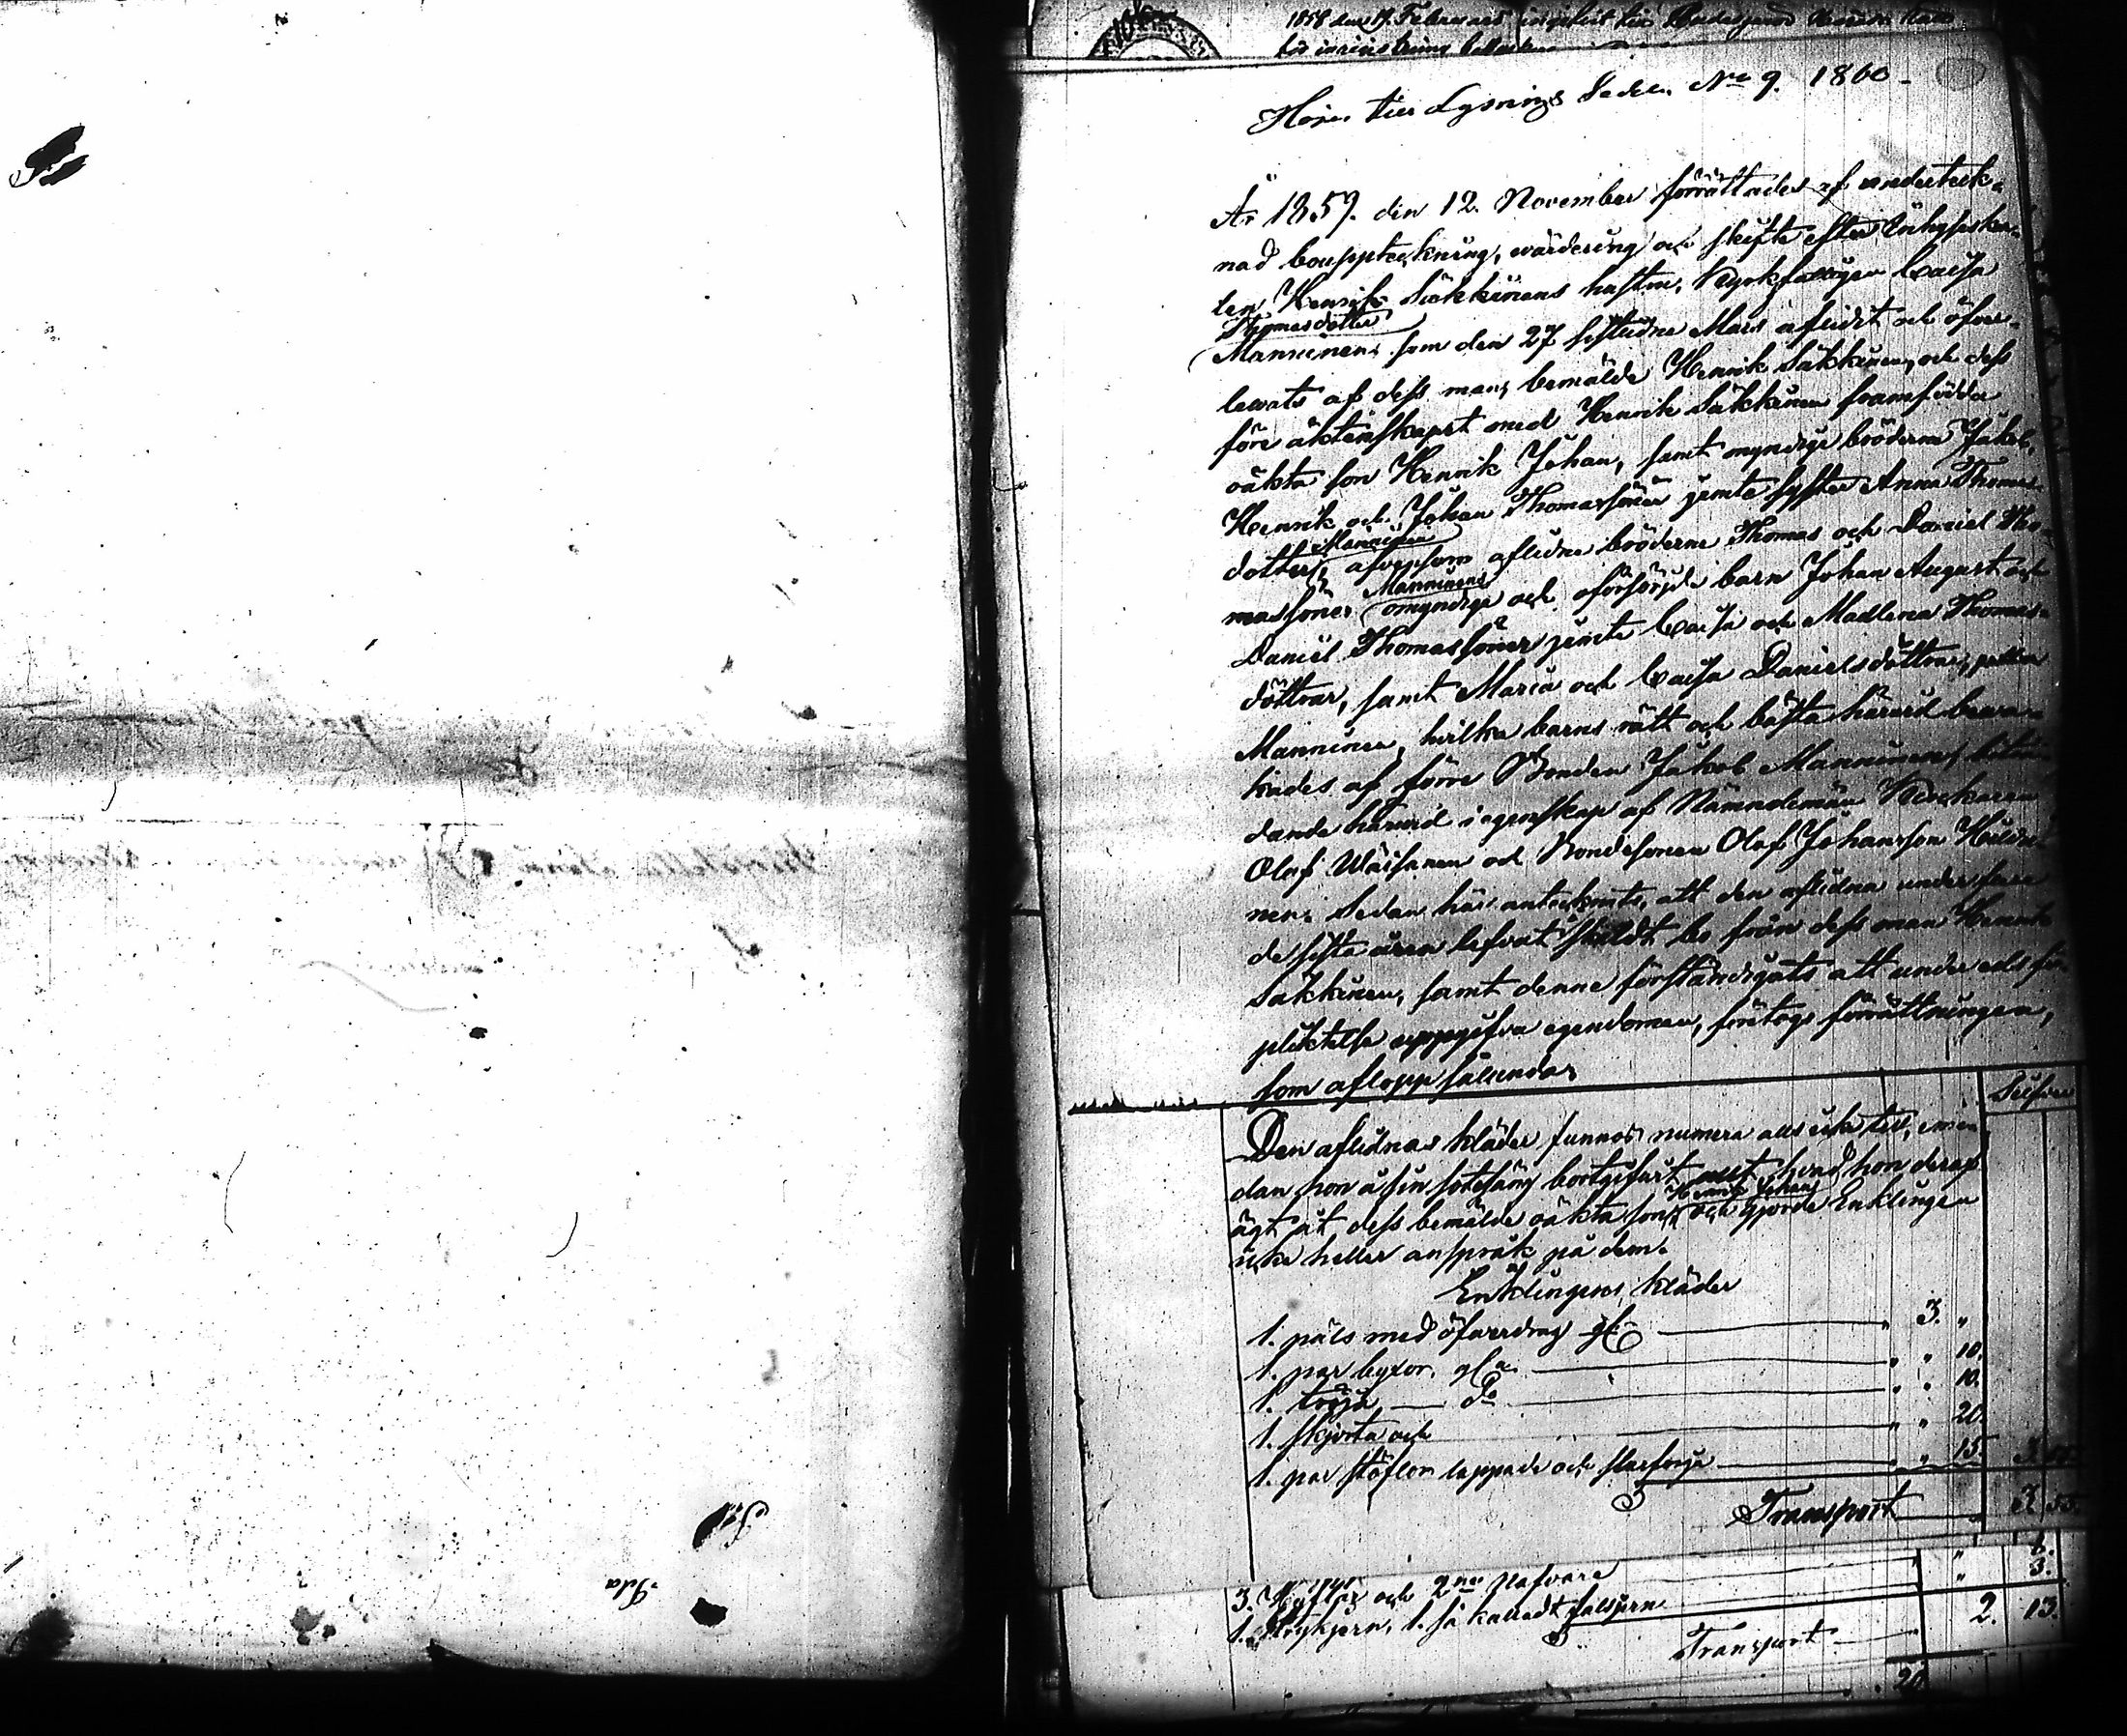 1858 den 17 Februari
Hörer till Lysnings Sedeln No 9. 1860
År 1859. den 12. November förrättades af underteck-
nad bouppteckning, wärdering och skifte efter Inhysiskar-
len Henrik Säkkinens hustru, Kyrkfattigen Caisa
Thomasdotter
Manninen, som den 27 sistledne Mars aflidit och öfver-
lewats af dess man, bemälde Henrik Säkkinen, och dess
före äktenskapet med Henrik Säkkinen framfödda
oäkta son Henrik Johan, samt myndige bröderne Jakob,
Henrik och Johan Thomassöner jemte syster Anna Thomas-
Manninen
dotter, afvensom aflidne bröderne Thomas och Daniel Tho-
Manninens
massöner omyndige och oförsörjde barn Johan August och
Daniel Thomassöner jemte Caisa och Madlena Thomas-
döttrar, samt Maria och Caisa Danielsdöttrar,
Manninen, hvilka barns rätt och bästa härwid bewa-
kades af förre Bonden Jakob Manninen,
dande härwid i egenskap af Nämndemän Kyrkowärden
Olof Wäisänen och Bondesonen Olof Johansson
nen. Sedan här antecknats, att den aflidna under
de sista åren lefvat skildt bo från dess man Henrik
Säkkinen, samt denne förständigats att under edsför-
pliktelse uppgifva egendomen, företogs förrättningen,
som aflopp sålunda:
Silfver
Den aflidnas kläder funnos numera alls icke till, eme-
dan hon å sin sotesäng bortgifvit allt hvad hon deraf
Henrik Johan
ägt åt dess bemälde oäkta son, och gjorde Enklingen
icke heller anspråk på dem.
Enklingens kläder
1. päls med öfverdrag gl. " 3. "
1. par byxor, gla " " 10.
1. tröja do " " 10.
1. skjorta och " " 20.
1. par stöflor lappade och " " 15. 3 55.
Transport 3 55.
6.
3. och 2ne nafvare " 3.
1. 1. så kalladt
Transport 2. 13.
20